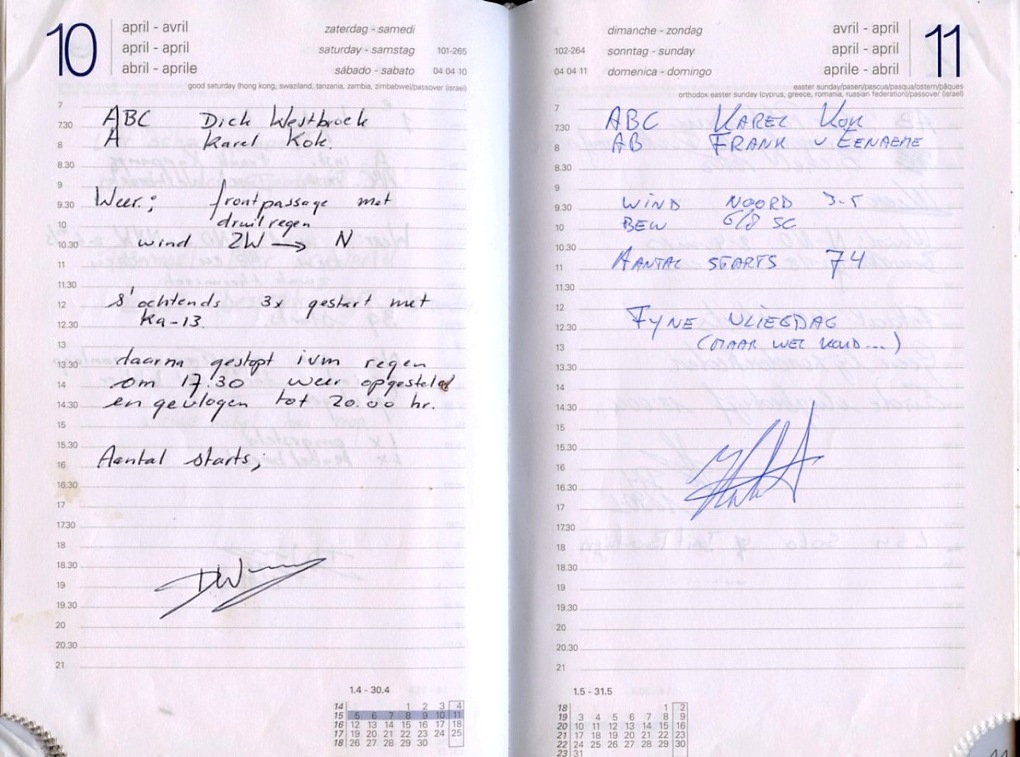 10
april - avril
april - april
abril - aprile
zaterdag - samedi
saturday - samstag 101-265
sábado - sabato 04 04 10
good saturday (hong kong, swaziland, tanzania, zambia, zimbabwe)/passover (israel)
7
7.30 ABC Dick Westbroek
8 A Karel Kok.
8.30
9
9.30 Weer; frontpassage met
10 druilregen
10.30 wind ZW → N
11
11.30
12 s'ochtends 3x gestart met
12.30 Ka-13.
13
13.30 daarna gestopt ivm regen
14 om 17.30 weer opgesteld
14.30 en gevlogen tot 20.00 hr.
15
15.30
16 Aantal starts;
16.30
17
17.30
18
18.30
19 DW
19.30
20
20.30
21
1.4 - 30.4
14 1 2 3 4
15 5 6 7 8 9 10 11
16 12 13 14 15 16 17 18
17 19 20 21 22 23 24 25
18 26 27 28 29 30
dimanche - zondag
102-264 sonntag - sunday
04 04 11 domenica - domingo
avril - april
april - april
aprile - abril
11
easter sunday/pasen/pascua/pasqua/ostern/pâques
orthodox easter sunday (cyprus, greece, romania, russian federation)/passover (israel)
7
7.30 ABC KAREL KOK
8 AB FRANK v EENAEME
8.30
9
9.30 WIND NOORD 3-5
10 BEW 6/8 SC
10.30
11 AANTAL STARTS 74
11.30
12
12.30 FYNE VLIEGDAG
13 (MAAR WEL KOUD...)
13.30
14
14.30
15
15.30
16
16.30
17
17.30
18
18.30
19
19.30
20
20.30
21
1.5 - 31.5
18 1 2
19 3 4 5 6 7 8 9
20 10 11 12 13 14 15 16
21 17 18 19 20 21 22 23
22 24 25 26 27 28 29 30
23 31